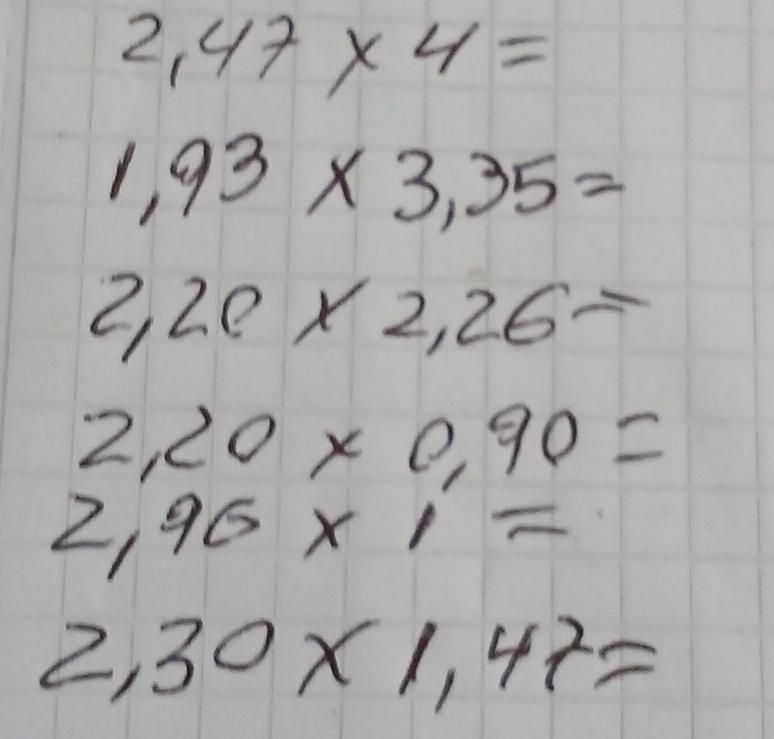 2,47 x 4 =
1,93 x 3,35 =
2,20 x 2,26 =
2,20 x 0,90 =
2,96 x 1 =
2,30 x 1,47 =